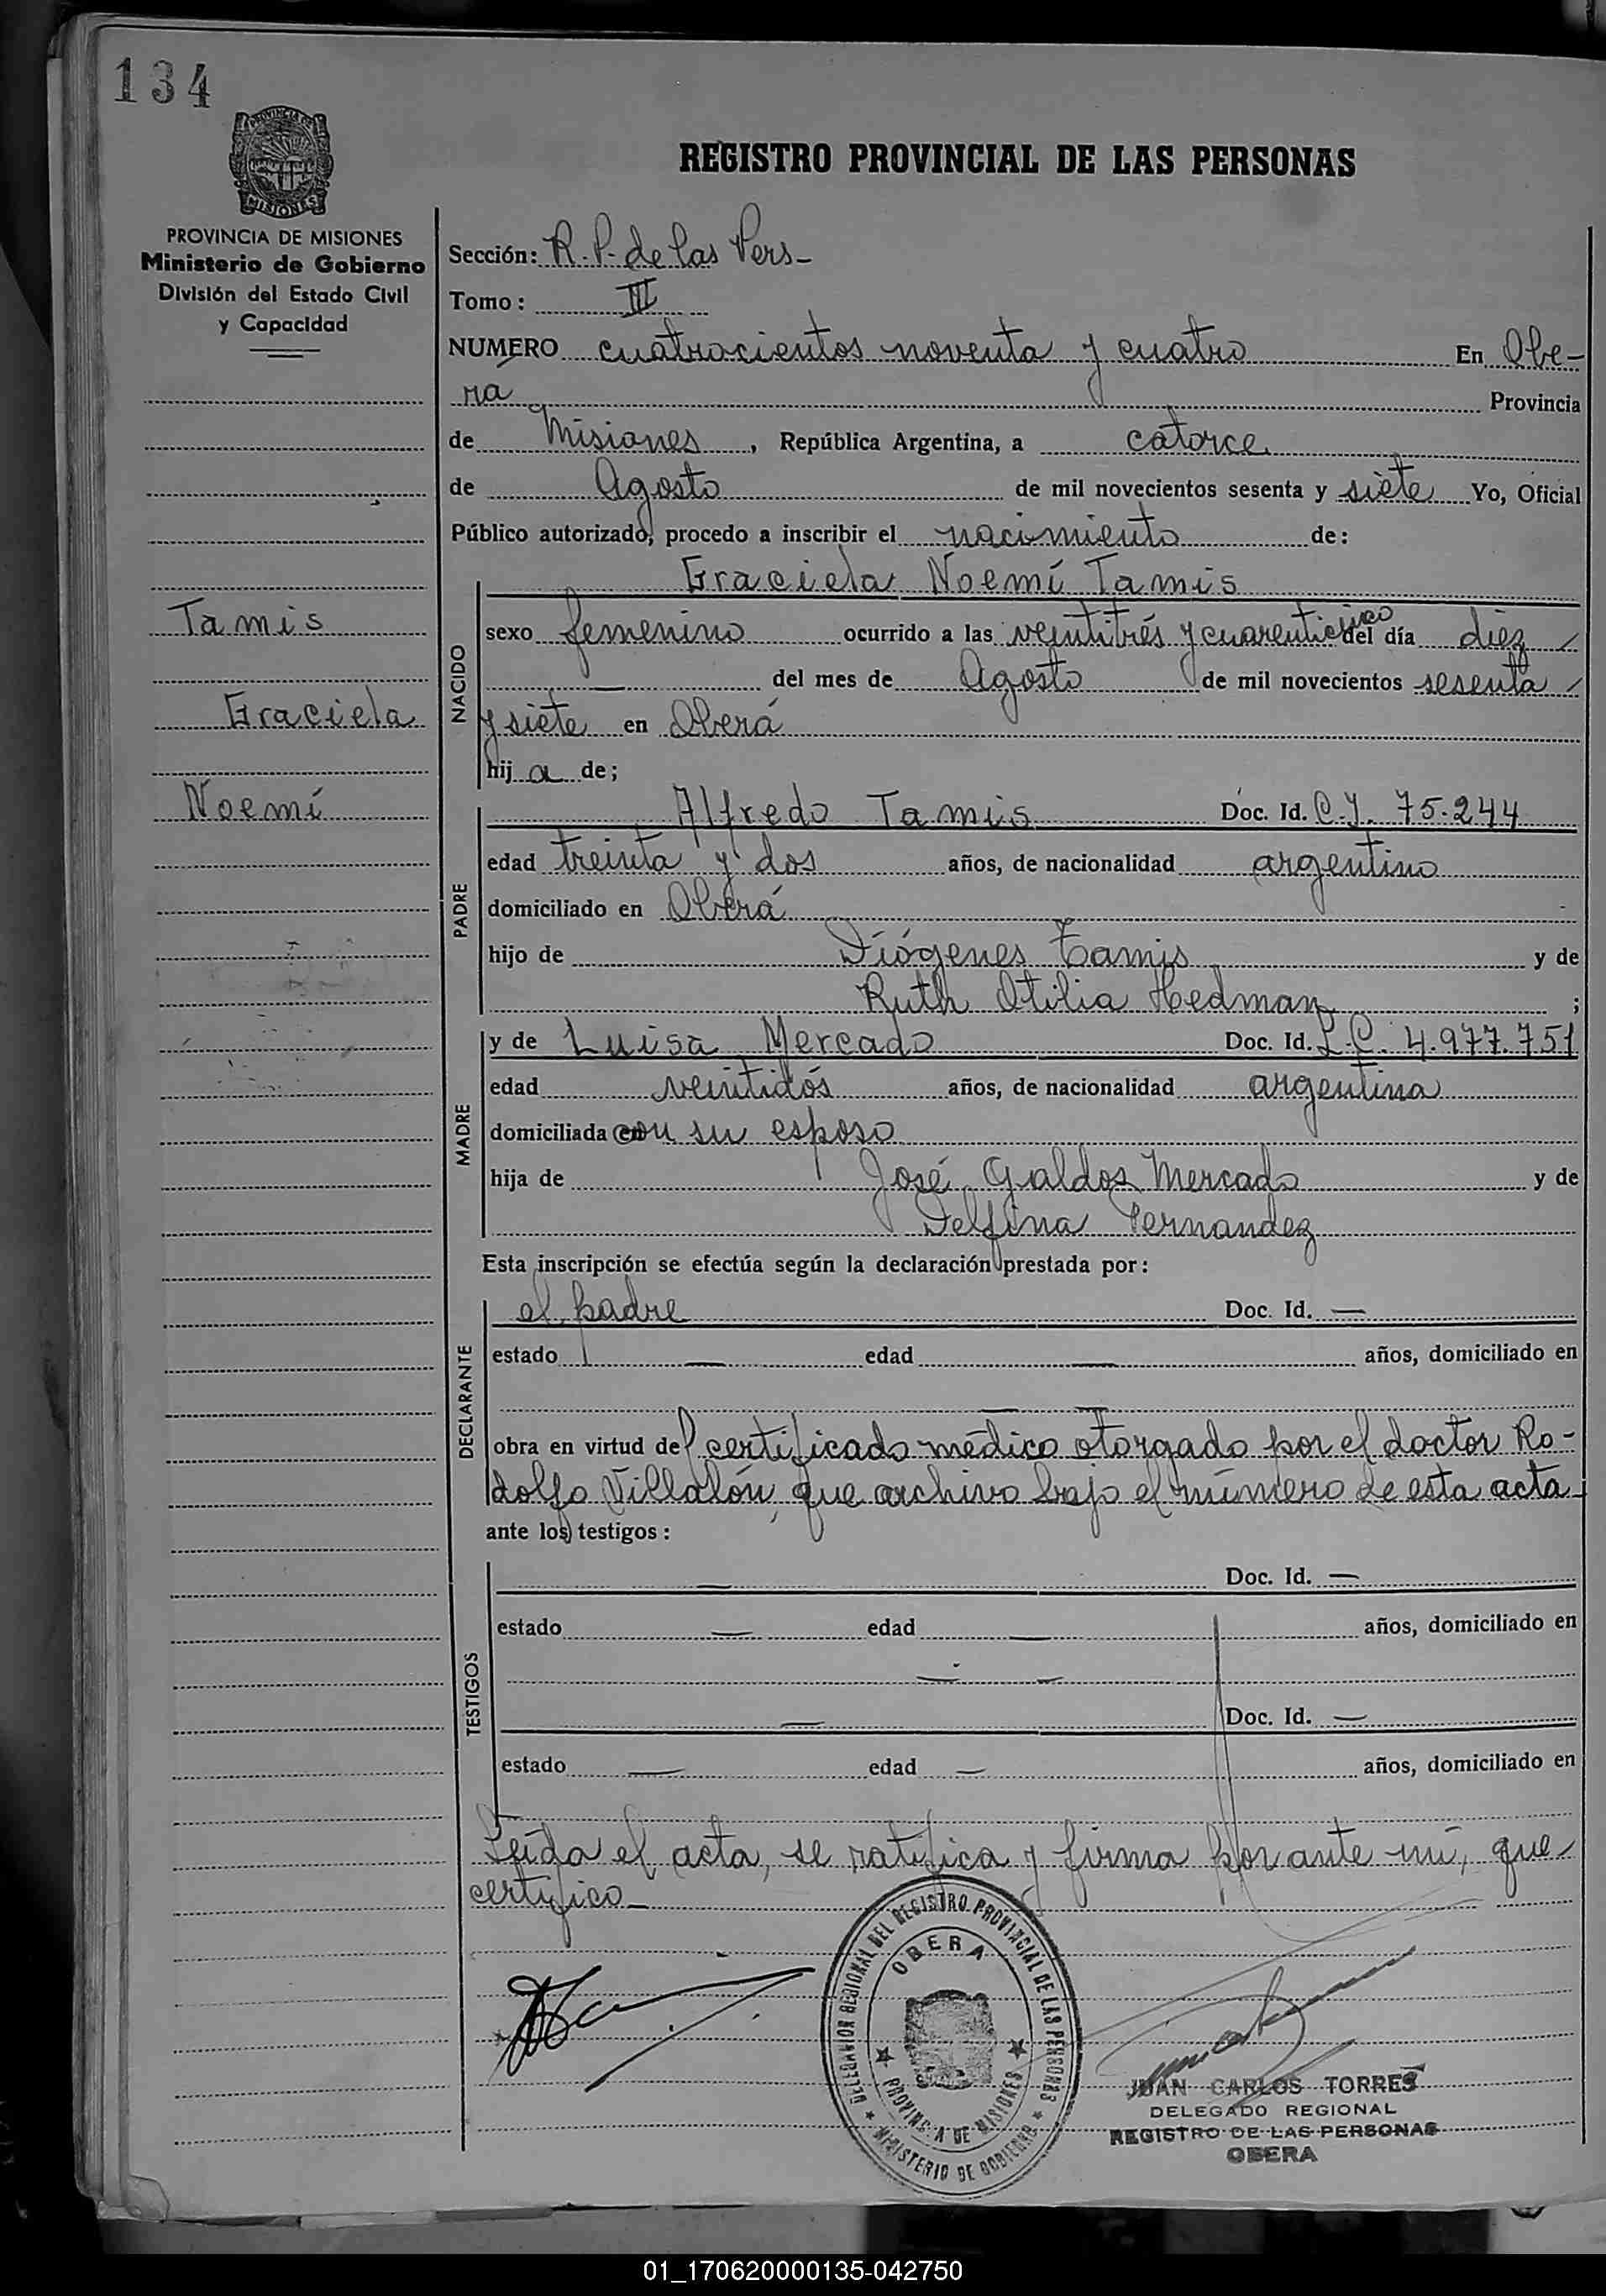 134
PROVINCIA DE
MISIONES
PROVINCIA DE MISIONES
Ministerio de Gobierno
División del Estado Civil
y Capacidad
Tamis
Graciela
Noemí
REGISTRO PROVINCIAL DE LAS PERSONAS
Sección: R. P. de las Pers-
Tomo: III
NUMERO cuatrocientos noventa y cuatro En Obe-
ra Provincia
de Misiones, República Argentina, a catorce
de Agosto de mil novecientos sesenta y siete Yo, Oficial
Público autorizado, procedo a inscribir el nacimiento de:
Graciela Noemí Tamis
NACIDO
sexo femenino ocurrido a las veintitrés y cuarenticinco del día diez
— del mes de Agosto de mil novecientos sesenta
y siete en Oberá
hija de;
PADRE
Alfredo Tamis Doc. Id. C.I. 75.244
edad treinta y dos años, de nacionalidad argentino
domiciliado en Oberá
hijo de Diógenes Tamis y de
Ruth Otilia Hedman ;
MADRE
y de Luisa Mercado Doc. Id. L.C. 4.977.751
edad veintidós años, de nacionalidad argentina
domiciliada con su esposo
hija de José Galdos Mercado y de
Delfina Fernandez
Esta inscripción se efectúa según la declaración prestada por:
DECLARANTE
el padre Doc. Id. —
estado — edad — años, domiciliado en
— —
obra en virtud del certificado médico otorgado por el doctor Ro-
dolfo Villalón, que archivo bajo el número de esta acta-
ante los testigos:
TESTIGOS
— Doc. Id. —
estado — edad — años, domiciliado en
— —
— Doc. Id. —
estado — edad — años, domiciliado en
Leída el acta, se ratifica y firma por ante mí, que
certifico-
DELEGACION REGIONAL DEL REGISTRO PROVINCIAL DE LAS PERSONAS
OBERA
PROVINCIA DE MISIONES
MINISTERIO DE GOBIERNO
JUAN CARLOS TORRES
DELEGADO REGIONAL
REGISTRO DE LAS PERSONAS
OBERA
01_170620000135-042750